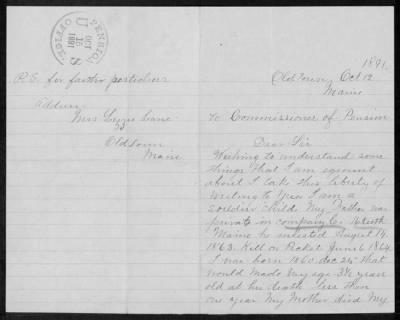 PENSION OFFICE
U S
OCT
16
1891
P.S. for farther perticulars
Address
Mrs Lizzie Lane
33
Oldtown
Maine
1891.
Oldtown Oct 12
Maine
To Commissioner of Pension
Dear Sir
Wishing to understand some
things that I am egnorant
about I take this liberty of
writing to you I am a
soldier child My Father was
private in company Co 16 tenth
Maine he enlisted August 14.
1863. Kill on Picket June 6 1864
I was born 1860 dec 25th that
would made my age 3½ years
old at his death less then
one year My Mother died My